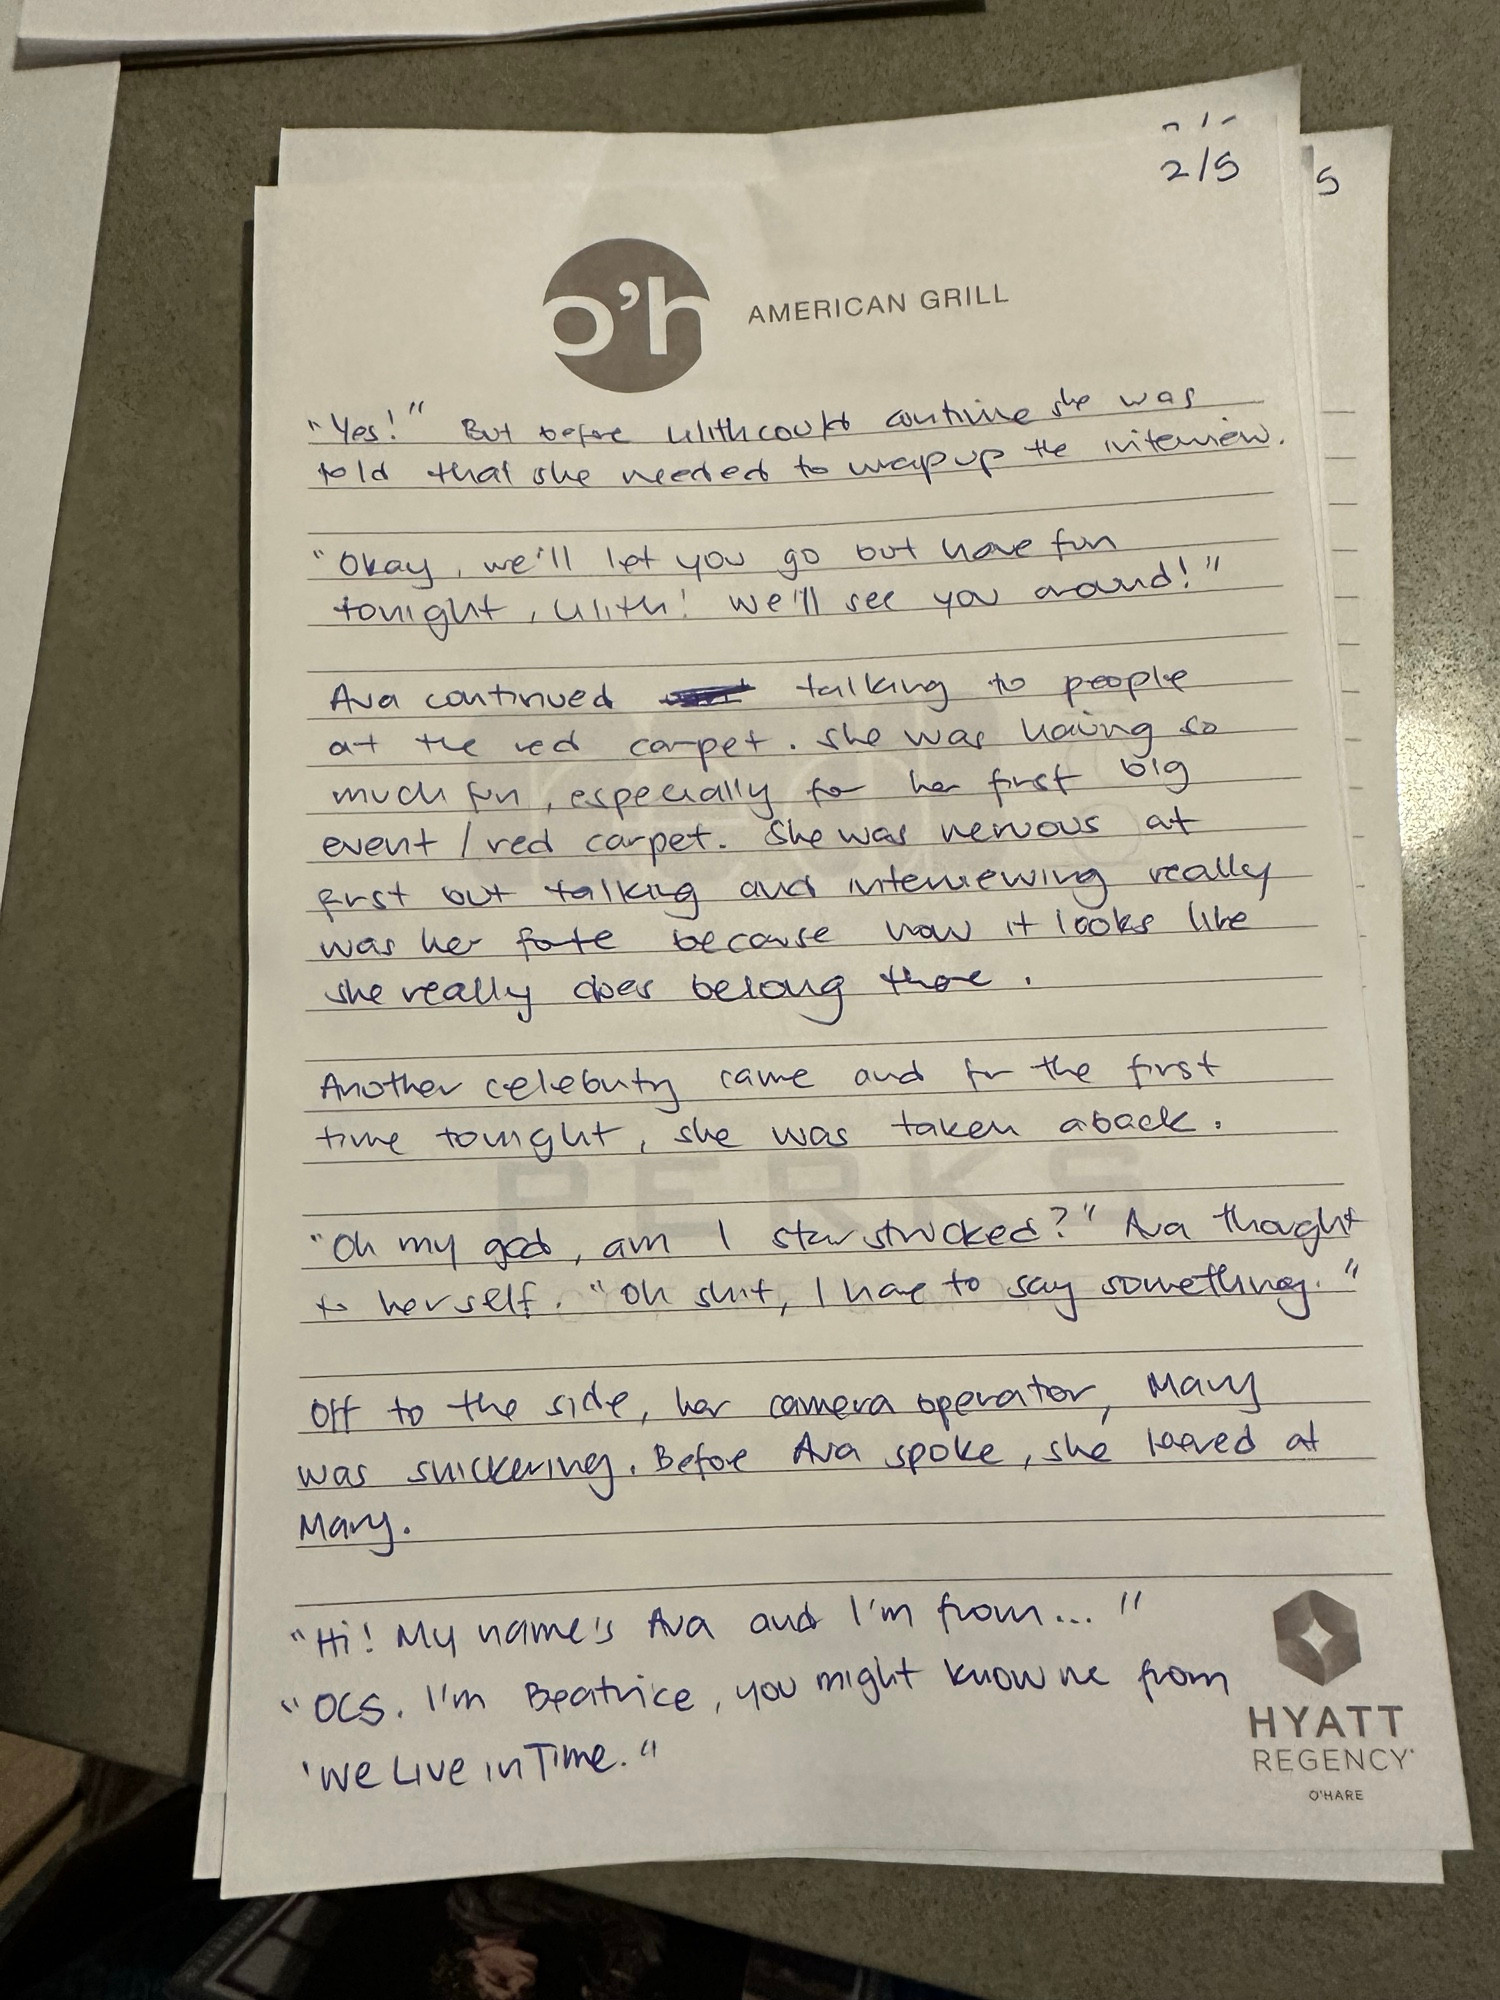 2/5
5
o'h AMERICAN GRILL
"Yes!" But before Lilith could continue she was
told that she needed to wrap up the interview.
"Okay, we'll let you go but have fun
tonight, Lilith! We'll see you around!"
Ava continued talking to people
at the red carpet. She was having so
much fun, especially for her first big
event / red carpet. She was nervous at
first but talking and interviewing really
was her forte because now it looks like
she really does belong there.
Another celebrity came and for the first
time tonight, she was taken aback.
PERKS
"Oh my god, am I starstricked?" Ava thought
to herself. "Oh shit, I have to say something."
Off to the side, her camera operator, Mary
was snickering. Before Ava spoke, she leered at
Mary.
"Hi! My name's Ava and I'm from... "
"OCS. I'm Beatrice, you might know me from
'We Live in Time."
HYATT
REGENCY
O'HARE